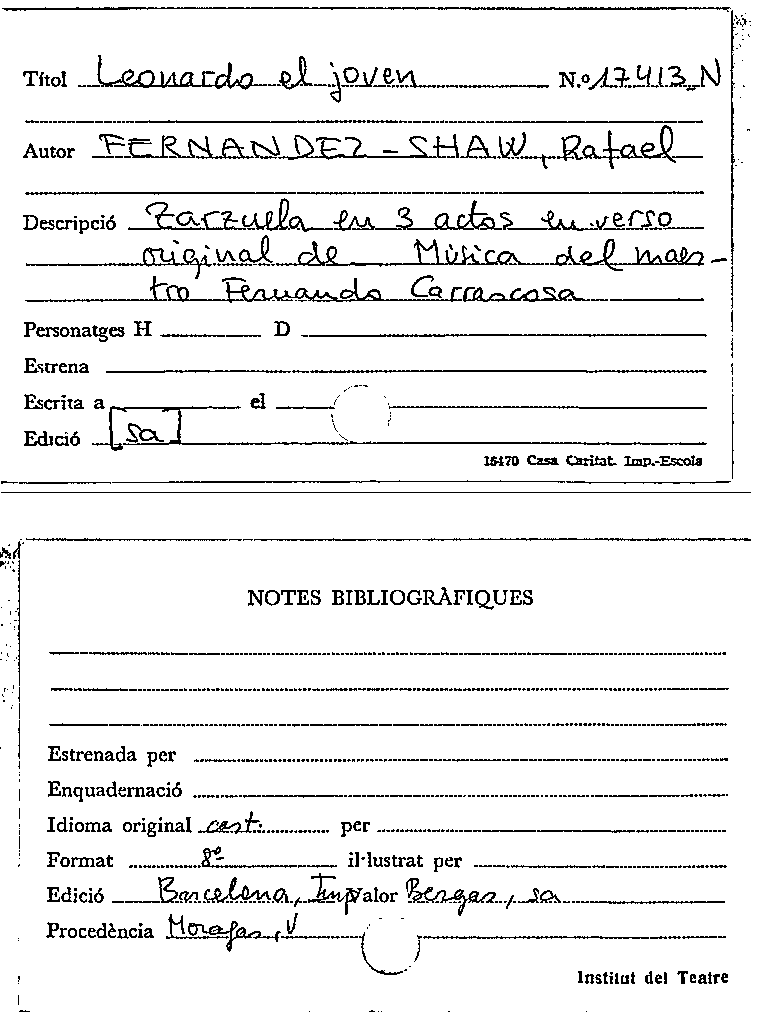 Títol Leonardo el joven N.º 17.413_N
Autor FERNANDEZ-SHAW, Rafael
Descripció Zarzuela en 3 actos en verso
original de Música del maes-
tro Fernando Carrascosa
Personatges H D
Estrena
Escrita a el
Edició [sa]
16470 Casa Caritat. Imp.-Escola
NOTES BIBLIOGRÀFIQUES
Estrenada per
Enquadernació
Idioma original cast. per
Format 8º il·lustrat per
Edició Barcelona, Imp Valor Bergas, sa
Procedència Moragas, V
Institut del Teatre